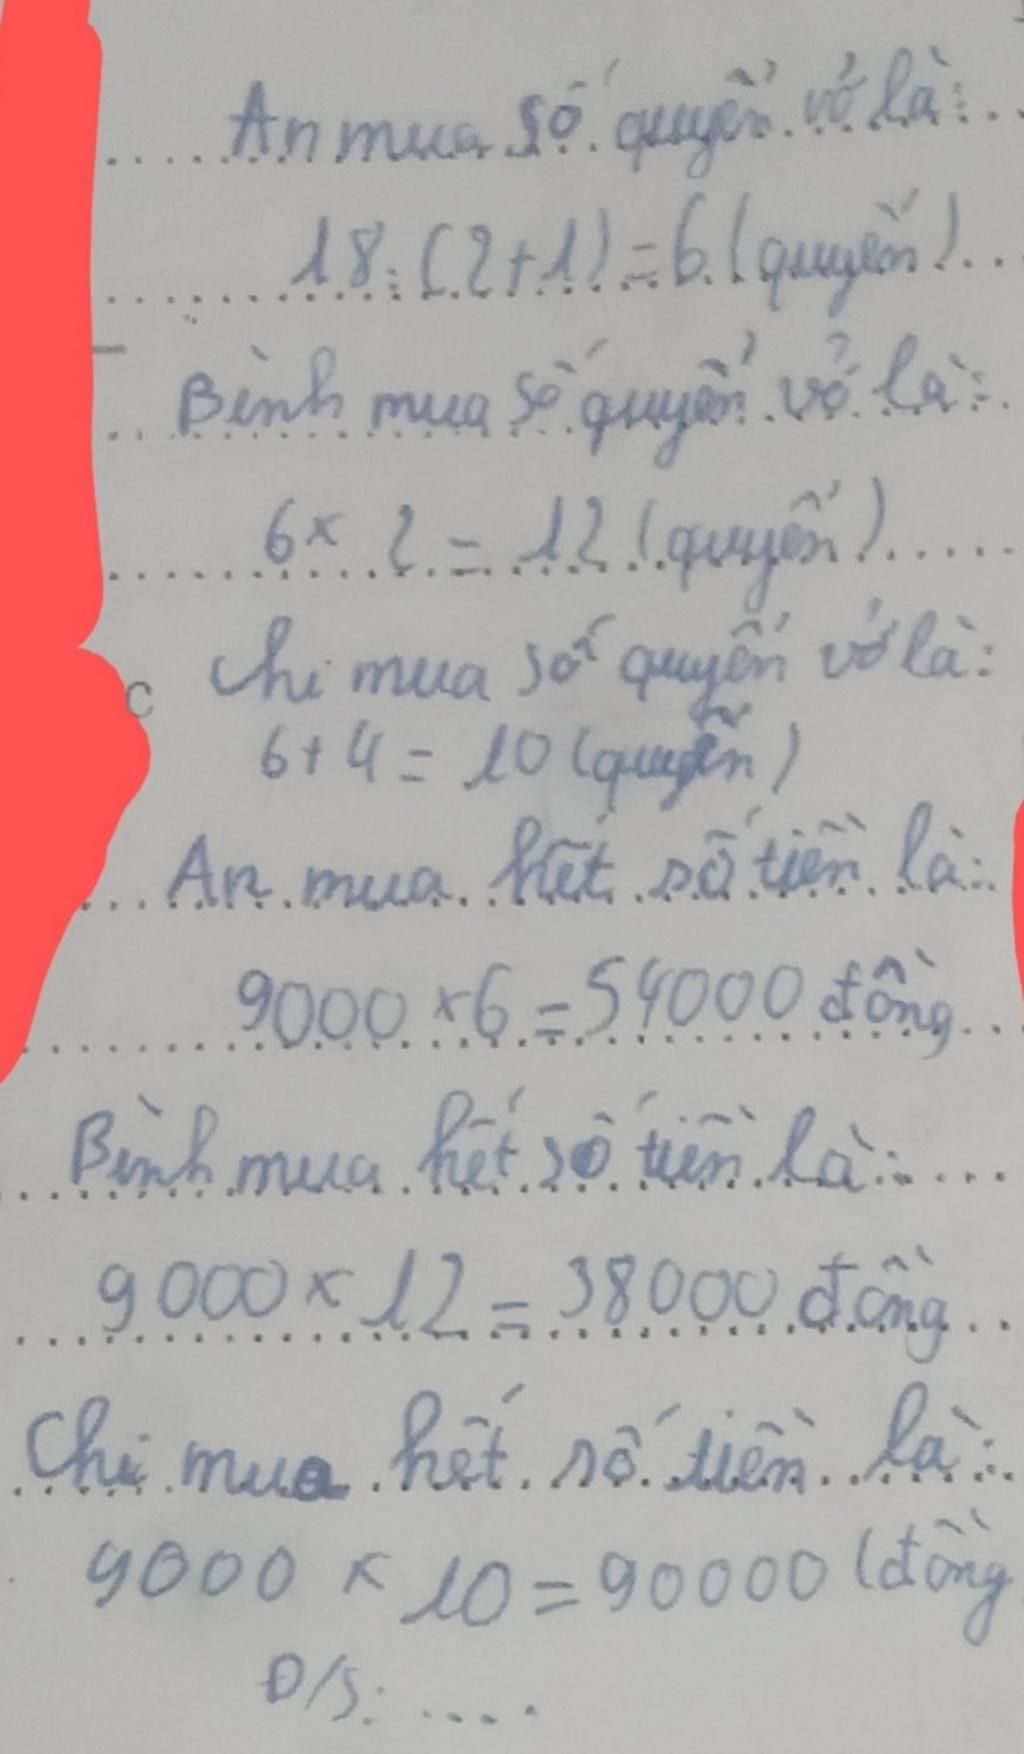 An mua số quyển vở là:
18:(2+1)=6 (quyển)
Bình mua số quyển vở là:
6 x 2 = 12 (quyển)
c
Chi mua số quyển vở là:
6+4 = 10 (quyển)
An mua hết số tiền là:
9000 x 6 = 54000 đồng
Bình mua hết số tiền là:
9000 x 12 = 38000 đồng
Chi mua hết số tiền là:
9000 x 10 = 90000 (đồng
Đ/S: ....